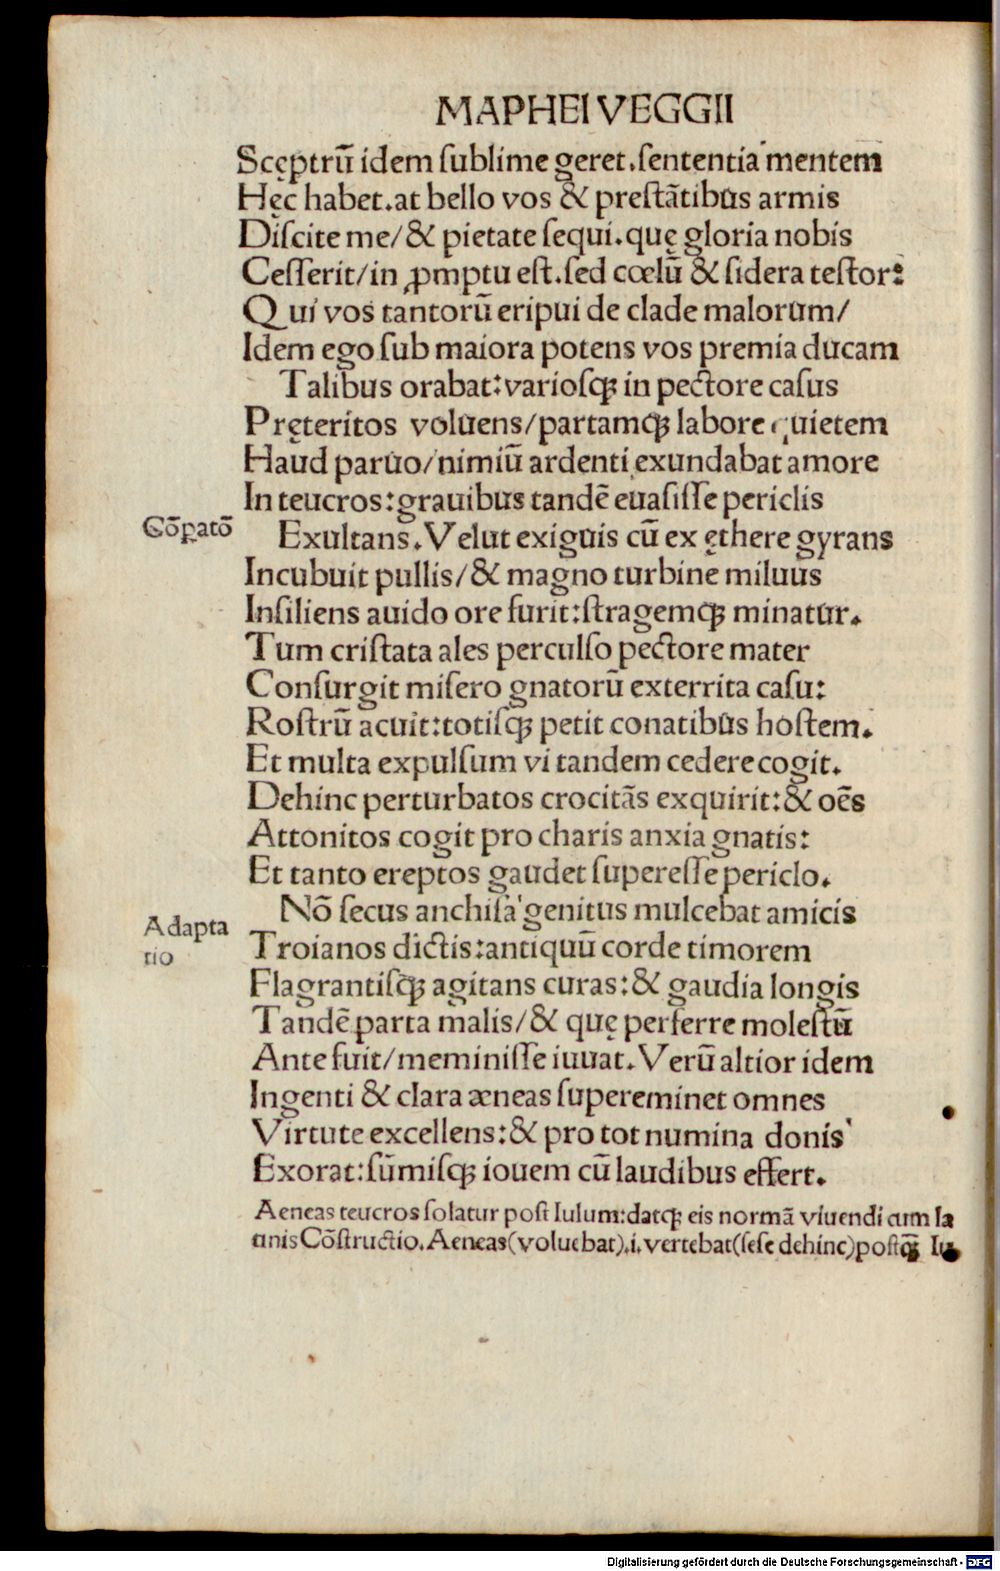 MAPHEI VEGGII
Scęptrũ idem ſublime geret.ſententia mentem
Hęc habet.at bello vos & preſtãtibus armis
Diſcite me/& pietate ſequi.quę gloria nobis
Ceſſerit/in ꝓmptu eſt.ſed cœlũ & ſidera teſtor:
Qui vos tantorũ eripui de clade malorum/
Idem ego ſub maiora potens vos premia ducam
Talibus orabat:varioſqꝫ in pectore caſus
Pręteritos voluens/partamqꝫ labore quietem
Haud paruo/nimiũ ardenti exundabat amore
In teucros:grauibus tandẽ euaſiſſe periclis
Cõꝑatõ
Exultans.Velut exiguis cũ ex ęthere gyrans
Incubuit pullis/& magno turbine miluus
Inſiliens auido ore furit:ſtragemqꝫ minatur.
Tum criſtata ales perculſo pectore mater
Conſurgit miſero gnatorũ exterrita caſu:
Roſtrũ acuit:totiſqꝫ petit conatibus hoſtem.
Et multa expulſum vi tandem cedere cogit.
Dehinc perturbatos crocitãs exquirit:& oẽs
Attonitos cogit pro charis anxia gnatis:
Et tanto ereptos gaudet ſupereſſe periclo.
Adapta
tio
Nõ ſecus anchiſa genitus mulcebat amicis
Troianos dictis:antiquũ corde timorem
Flagrantiſqꝫ agitans curas:& gaudia longis
Tandẽ parta malis/& quę perferre moleſtũ
Ante fuit/meminiſſe iuuat.Verũ altior idem
Ingenti & clara æneas ſupereminet omnes
Virtute excellens:& pro tot numina donis
Exorat:ſũmiſqꝫ iouem cũ laudibus effert.
Aeneas teucros ſolatur poſt Iulum:datqꝫ eis normã viuendi cum la
tinis Cõſtructio.Aeneas(voluebat).i.vertebat(ſeſe dehinc)poſtꝗ̃ Iu
Digitalisierung gefördert durch die Deutsche Forschungsgemeinschaft - DFG